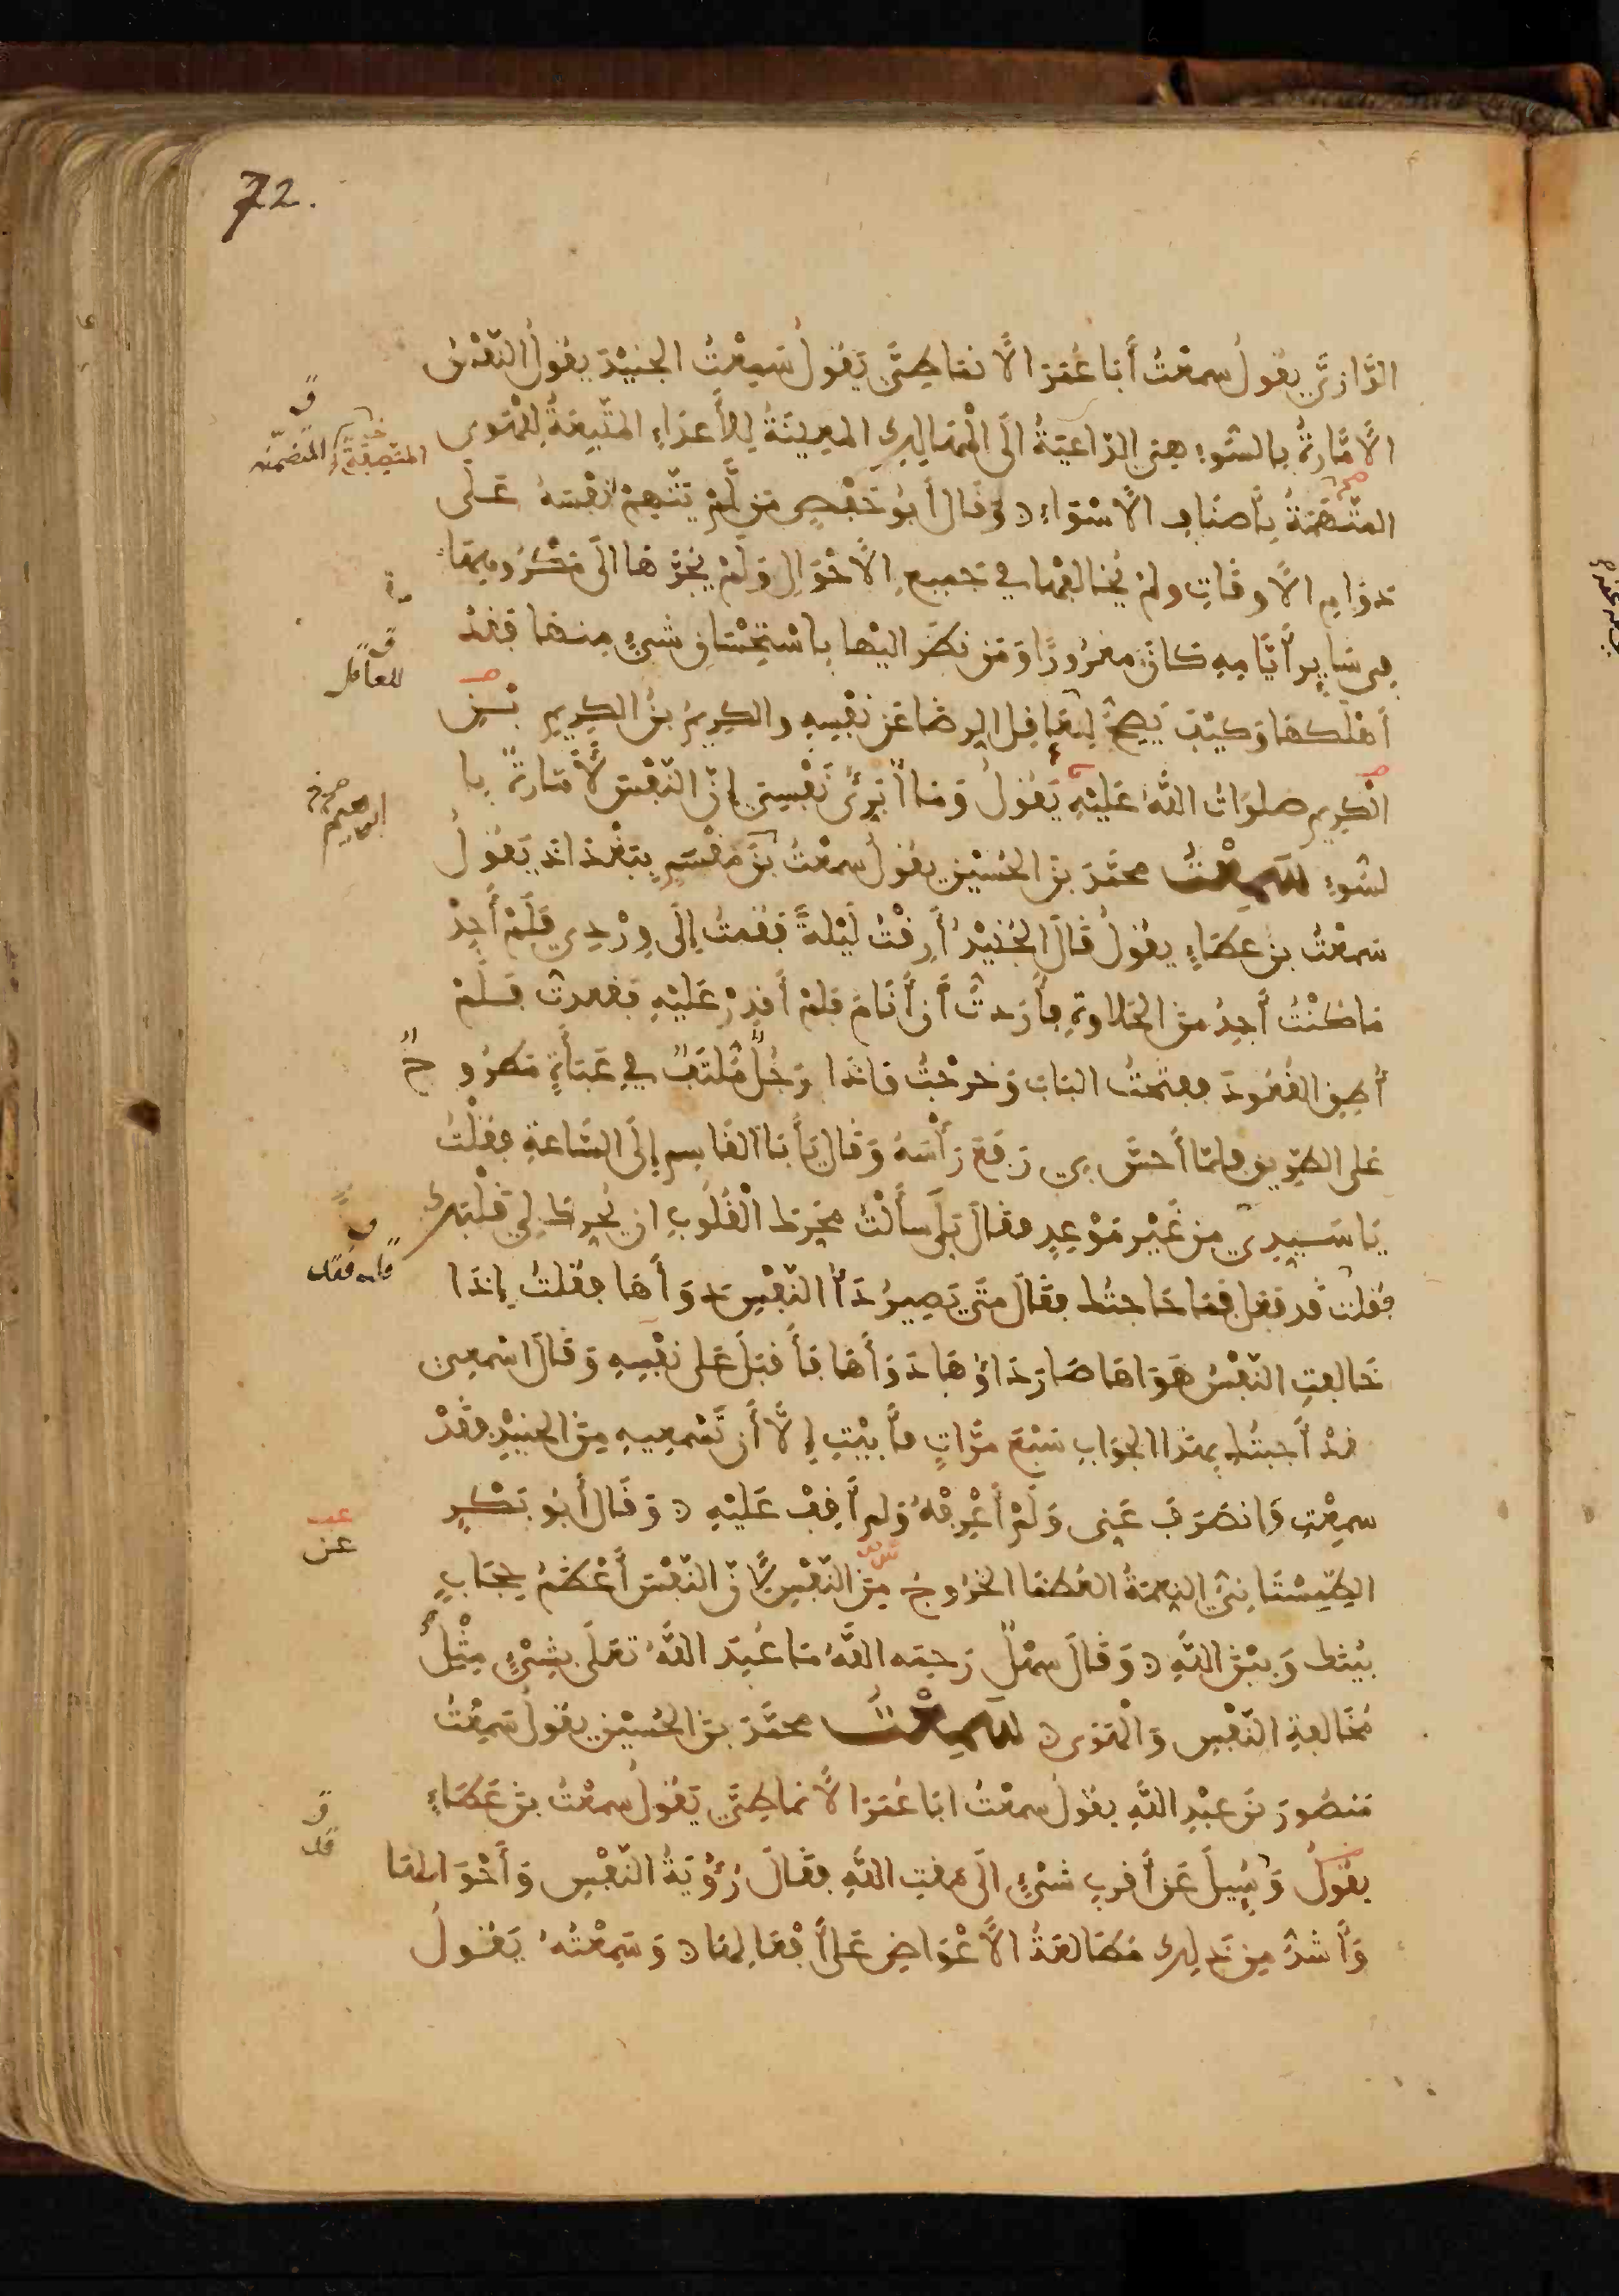 72.
الرَّازِيَّ يقولُ سمعْتُ أَبَا عُمَرَ الأَنمَاطِيَّ يَقُولُ سَمِعْتُ الجُنَيْدَ يقولُ النَّفْسُ
الأَمَّارَةُ بالسُّوءِ هِيَ الدَّاعِيَةُ الَى الْمَهَالِكِ المعِينَةُ لِلأَعدَاءِ المتَّبِعَةُ لِلْهَوى
المتَّهَمَةُ بِأَصنَافِ الأَسْوَاءِ وَقَالَ أَبُو حَفْصٍ مَن لَّمْ يَتَّهِمْ نَفْسَهُ عَلَى
دَوَامِ الأَوقَاتِ ولمْ يُخالفْهَا في جَميعِ الأَحْوَالِ وَلَمْ يَجُرَّهَا الَى مَكْرُوهِهَا
فِي سَايِرِ أَيَّامِهِ كَانَ مغرُورًا وَمَن نَظَرَ اليْهَا باسْتِحْسَانِ شىْءٍ مِنهَا فَقَدْ
أَهْلَكَهَا وَكَيْفَ يَصِحُّ لِعَاقِلٍ الرِضَا عَن نَفْسِهِ والكرِيمُ بنُ الكرِيمِ بْنِ
الْكرِيمِ صلوَاتُ اللهِ عَلَيْهِ يَقُولُ وَمَا أُبَرِّئُ نَفْسِي إنَّ النَّفْسَ لأَمَّارَةٌ با
لسُّوءِ سَمِعْتُ محمَّدَ بنَ الحُسَيْنِ يقولُ سمعْتُ بنَ مَقْسَمٍ بِبَغْدَادَ يَقُولُ
سَمعْتُ بنَ عَطَاءٍ يقولُ قَالَ الجُنَيْدُ أَرِقْتُ لَيْلَةً فَقُمتُ إِلَى وِرْدِي فَلَمْ أَجِدْ
مَا كُنْتُ أَجِدُ منَ الحَلاوةِ فأَرَدتُّ أَنْ أَنَامَ فلمْ أَقدِرْ عَلَيْهِ فقعدتُ فَلَمْ
أُطِقِ القُعُودَ ففتحْتُ البَابَ وَخرجْتُ فَاِذَا رَجُلٌ مُلتَفٌّ في عَبَأَةٍ مَطرُوحٌ
عَلى الطرِيقِ فلمَّا أَحسَّ بي رَفَعَ رَأْسَهُ وَقَالَ يَأَبَا القَاسِمِ إِلَى السَّاعَةِ فقلْتُ
يَا سَيِّدِي مِن غَيْرِ مَوْعِدٍ فقَالَ بَلَى سأَلْتُ محَرِّكَ الْقُلُوبِ ان يُحرِكَ لِي قَلْبَكَ
فقلت قَد فعَلَ فمَا حَاجتُكَ فقَالَ متَى يَصِيرُ دَاءُ النَّفْسِ دَوَأَهَا فقُلتُ إِذَا
خَالفتِ النَّفْسُ هَوَاهَا صَارَ دَاؤُهَا دَوَأَهَا فأَقبَلَ عَلى نفْسِهِ وَقَالَ اسْمعِي
قدْ أَجبتُكِ بهَذَا الجَوَابِ سَبْعَ مَرَّاتٍ فأَبيْتِ إِلاَّ أَن تَسْمعِيهِ مِنَ الجنيْدِ فقَدْ
سمعْتِ وَانصَرَفَ عَنِي وَلَمْ أَعْرِفْهُ وَلم أَقِفْ عَلَيْهِ وَقَالَ أَبُو بَكْرٍ
الطَّمِسْتَانِيُّ النِعمَةُ العُظمَا الخُرُوجُ مِنَ النَّفْسِ لأَنَّ النَّفْسَ أَعْظَمُ حِجَابٍ
بَيْنَكَ وَبيْنَ اللهِ وَقَالَ سهْلٌ رَحِمَه اللهُ مَا عُبِدَ اللهُ تعَلَى بِشَىْءٍ مِثْلُ
مُخَالفةِ النَّفْسِ وَالْهَوَى سَمِعْتُ محمَّدَ بنَ الحُسَيْنِ يقولُ سَمِعْتُ
مَنصُورَ بنَ عبْدِ اللهِ يقولُ سمعْتُ ابَا عُمَرَ الأَنماطِيَّ يَقُولُ سمعْتُ بنَ عَطَاءٍ
يقولُ وَسُئِلَ عَن أَقربِ شىْءٍ الَى مَقتِ اللهِ فقَالَ رُؤْيَةُ النَّفْسِ وَأَحْوَالهَا
وَأَشدُّ مِن ذَلِكَ مُطَالعَةُ الأَعْوَاضِ عَلى أَفْعَالهَا وَسَمِعْتُهُ يَقُولُ
المتصفة المتضمنه
للعاقل
ابراهيم
عن
قال